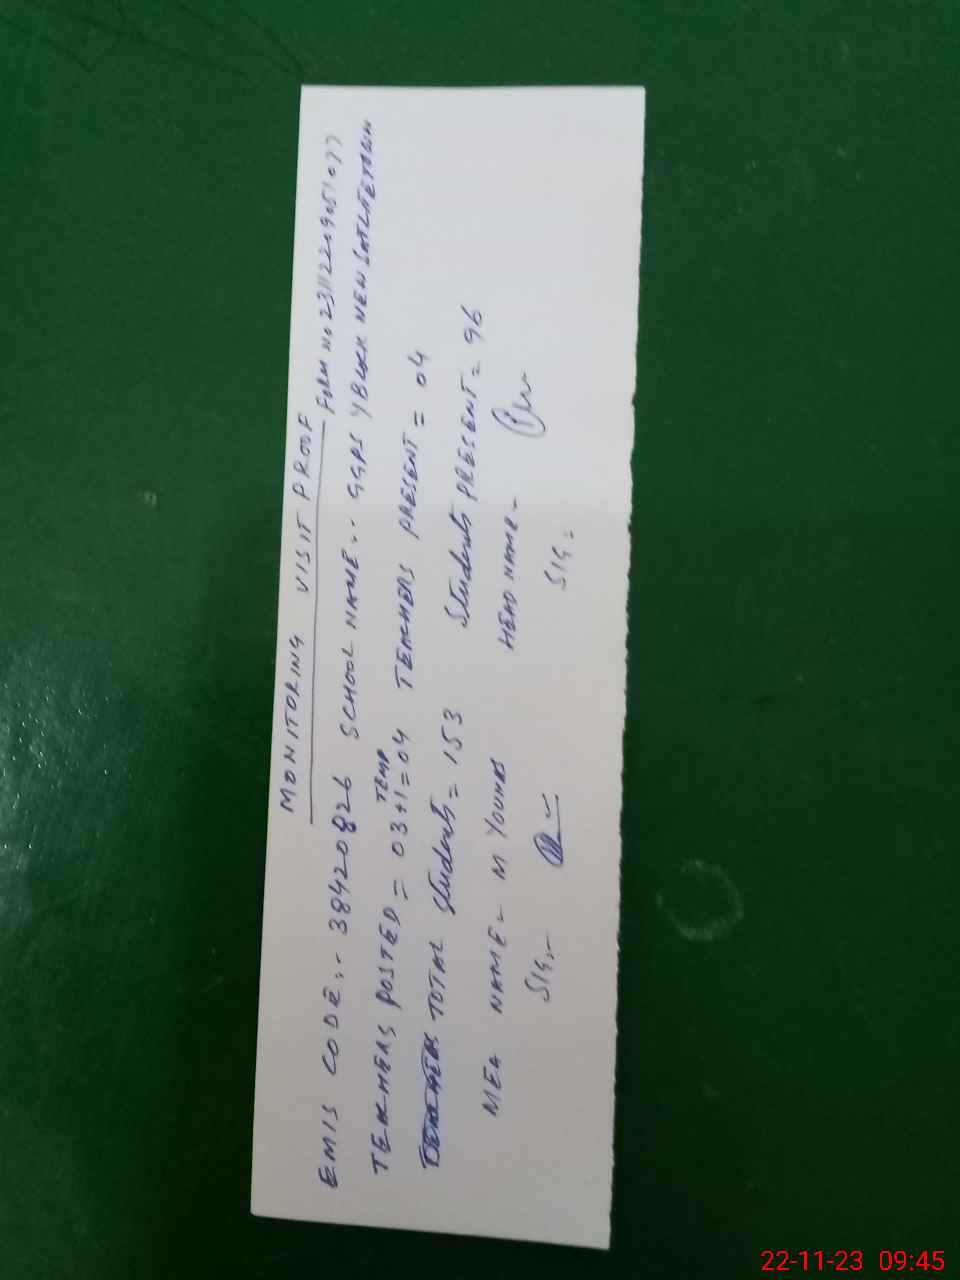 MONITORING VISIT PROOF
FORM NO 23112209051077
EMIS CODE:- 38420826 SCHOOL NAME:- GGPS Y BLOCK NEW SATLITETOWN
TEMP
TEACHERS POSTED = 03+1=04 TEACHERS PRESENT = 04
TOTAL Students = 153 Students PRESENT = 96
MEA NAME - M YOUNAS HEAD NAME -
SIG:- SIG:
22-11-23 09:45